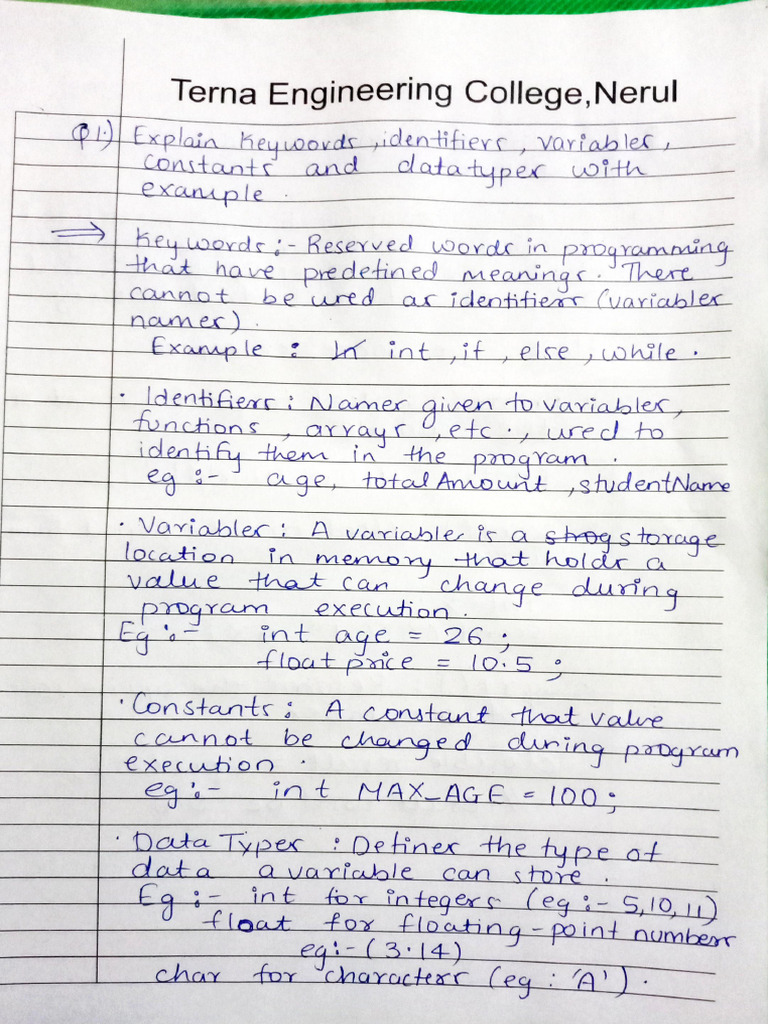 Terna Engineering College,Nerul
Q1.) Explain Keywords, identifiers, variables,
constants and datatypes with
example.
⇒ Keywords :- Reserved words in programming
that have predefined meanings. There
cannot be used as identifiers (variables
names).
Example : int, if, else, while.
• Identifiers : Names given to variables,
functions, arrays, etc., used to
identify them in the program.
eg :- age, totalAmount, studentName
• Variables : A variables is a storage
location in memory that holds a
value that can change during
program execution.
Eg :- int age = 26 ;
float price = 10.5 ;
• Constants : A constant that value
cannot be changed during program
execution.
eg :- int MAX_AGE = 100 ;
• Data Types : Defines the type of
data a variable can store.
Eg :- int for integers (eg :- 5,10,11)
float for floating-point numbers
eg:-(3.14)
char for characters (eg : 'A').